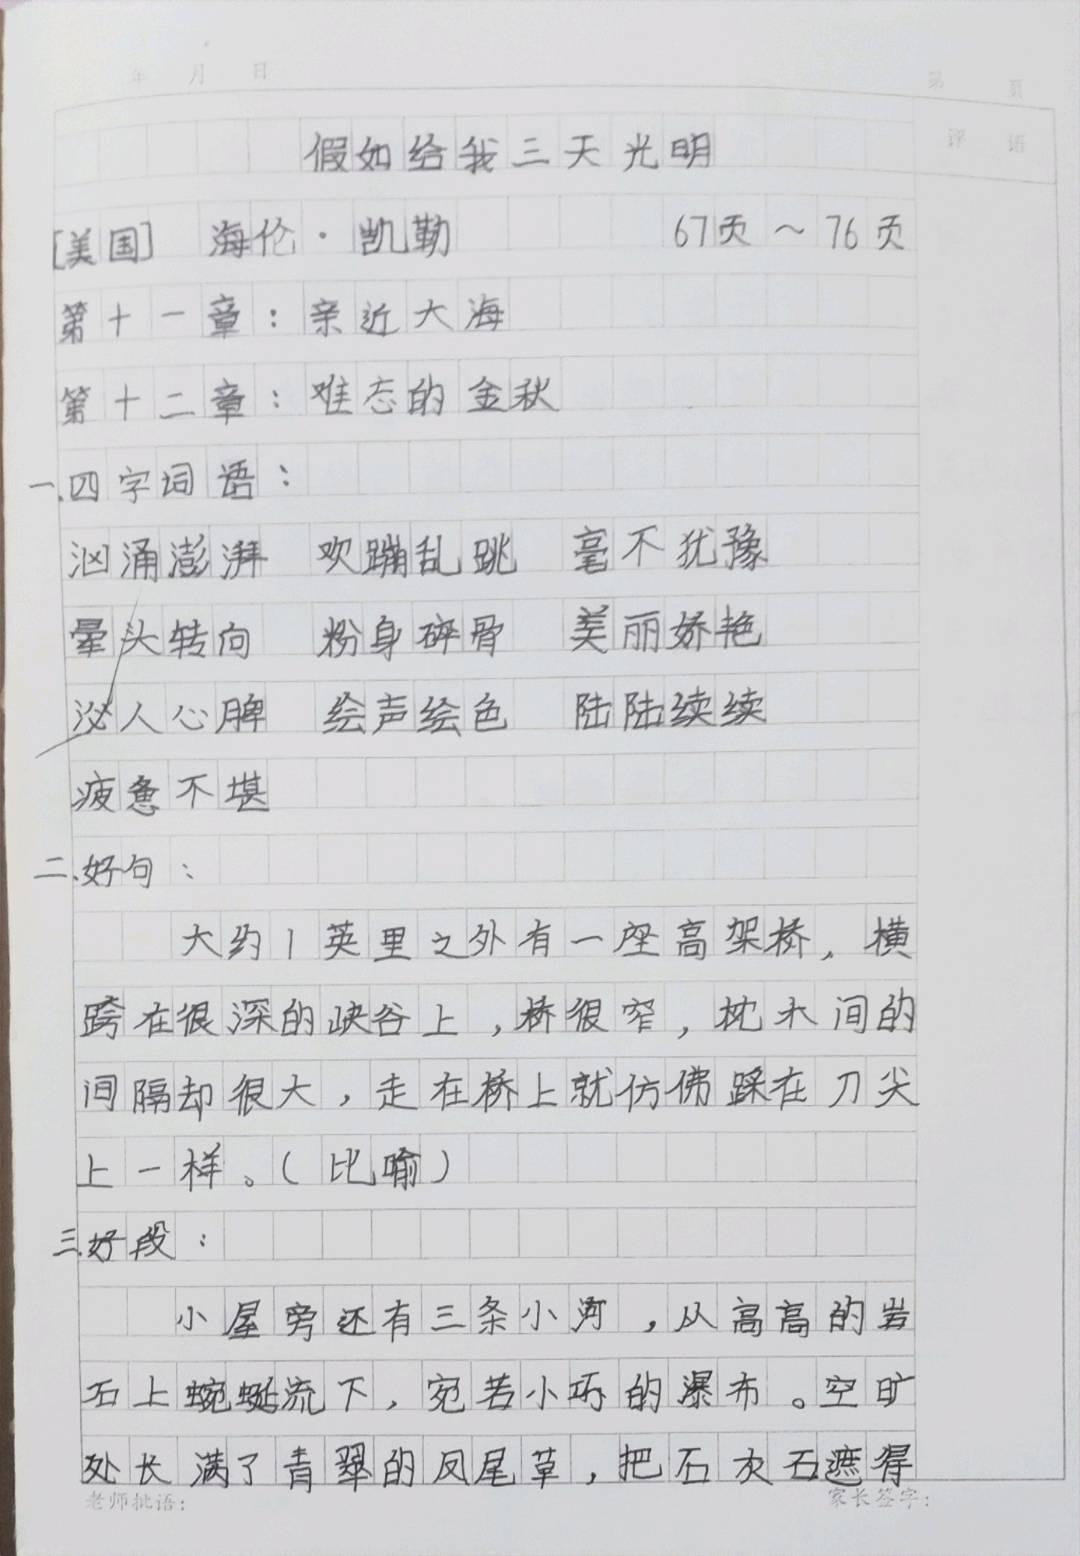 年 月 日
第 页
评 语
假如给我三天光明
[美国] 海伦·凯勒 67页～76页
第十一章：亲近大海
第十二章：难忘的金秋
一.四字词语：
汹涌澎湃 欢蹦乱跳 毫不犹豫
晕头转向 粉身碎骨 美丽娇艳
沁人心脾 绘声绘色 陆陆续续
疲惫不堪
二、好句：
大约1英里之外有一座高架桥，横
跨在很深的峡谷上，桥很窄，枕木间的
间隔却很大，走在桥上就仿佛踩在刀尖
上一样。（比喻）
三.好段：
小屋旁还有三条小河，从高高的岩
石上蜿蜒流下，宛若小巧的瀑布。空旷
处长满了青翠的凤尾草，把石灰石遮得
老师批语： 家长签字：